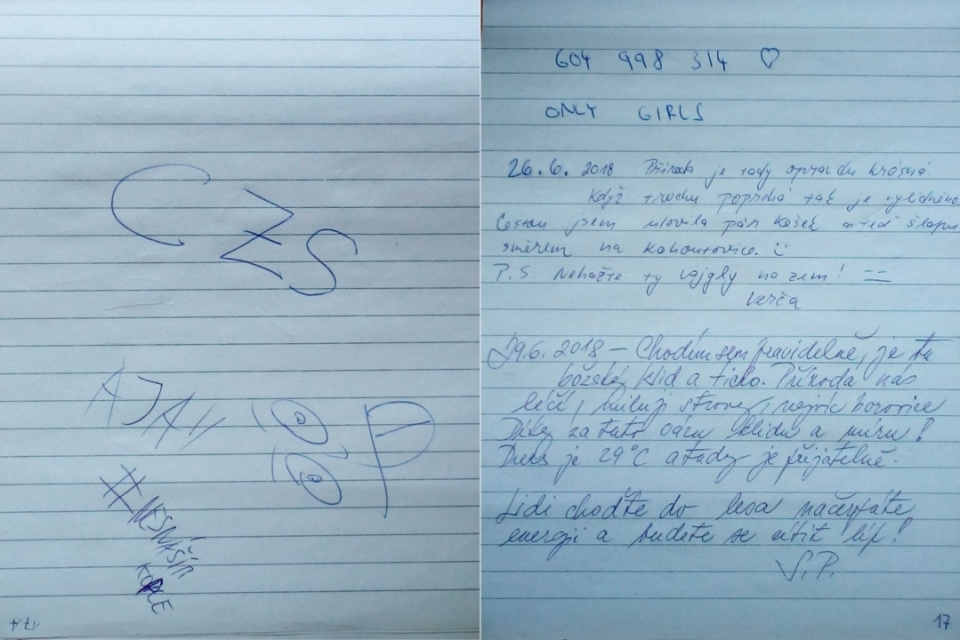 CZS
AJAV
P
#NESNÁŠÍM
604 998 314 ♡
ONLY GIRLS
26.6. 2018 Příroda je tady opravdu krásná.
Když trochu poprchá tak je vylidněno
Cestou jsem ulovila pár kešek a teď šlapu
směrem na Kohoutovice. :)
P.S. Nehažte ty vajgly na zem! ==
Verča
29.6. 2018 – Chodím sem pravidelně, je tu
božský klid a ticho. Příroda nás
léčí, miluji stromy, nejvíc borovice
Díky za tuto oázu klidu a míru!
Dnes je 29°C a tady je přijatelně.
Lidi choďte do lesa načerpáte
energii a budete se cítit líp!
V.P.
17